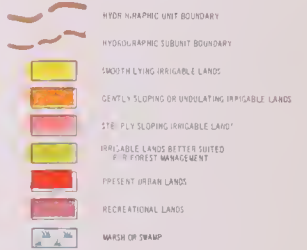 HYDROGRAPHIC UNIT BOUNDARY
HYDROGRAPHIC SUBUNIT BOUNDARY
SMOOTH LYING IRRIGABLE LANDS
GENTLY SLOPING OR UNDULATING IRRIGABLE LANDS
STEEPLY SLOPING IRRIGABLE LANDS
IRRIGABLE LANDS BETTER SUITED
FOR FOREST MANAGEMENT
PRESENT URBAN LANDS
RECREATIONAL LANDS
MARSH OR SWAMP